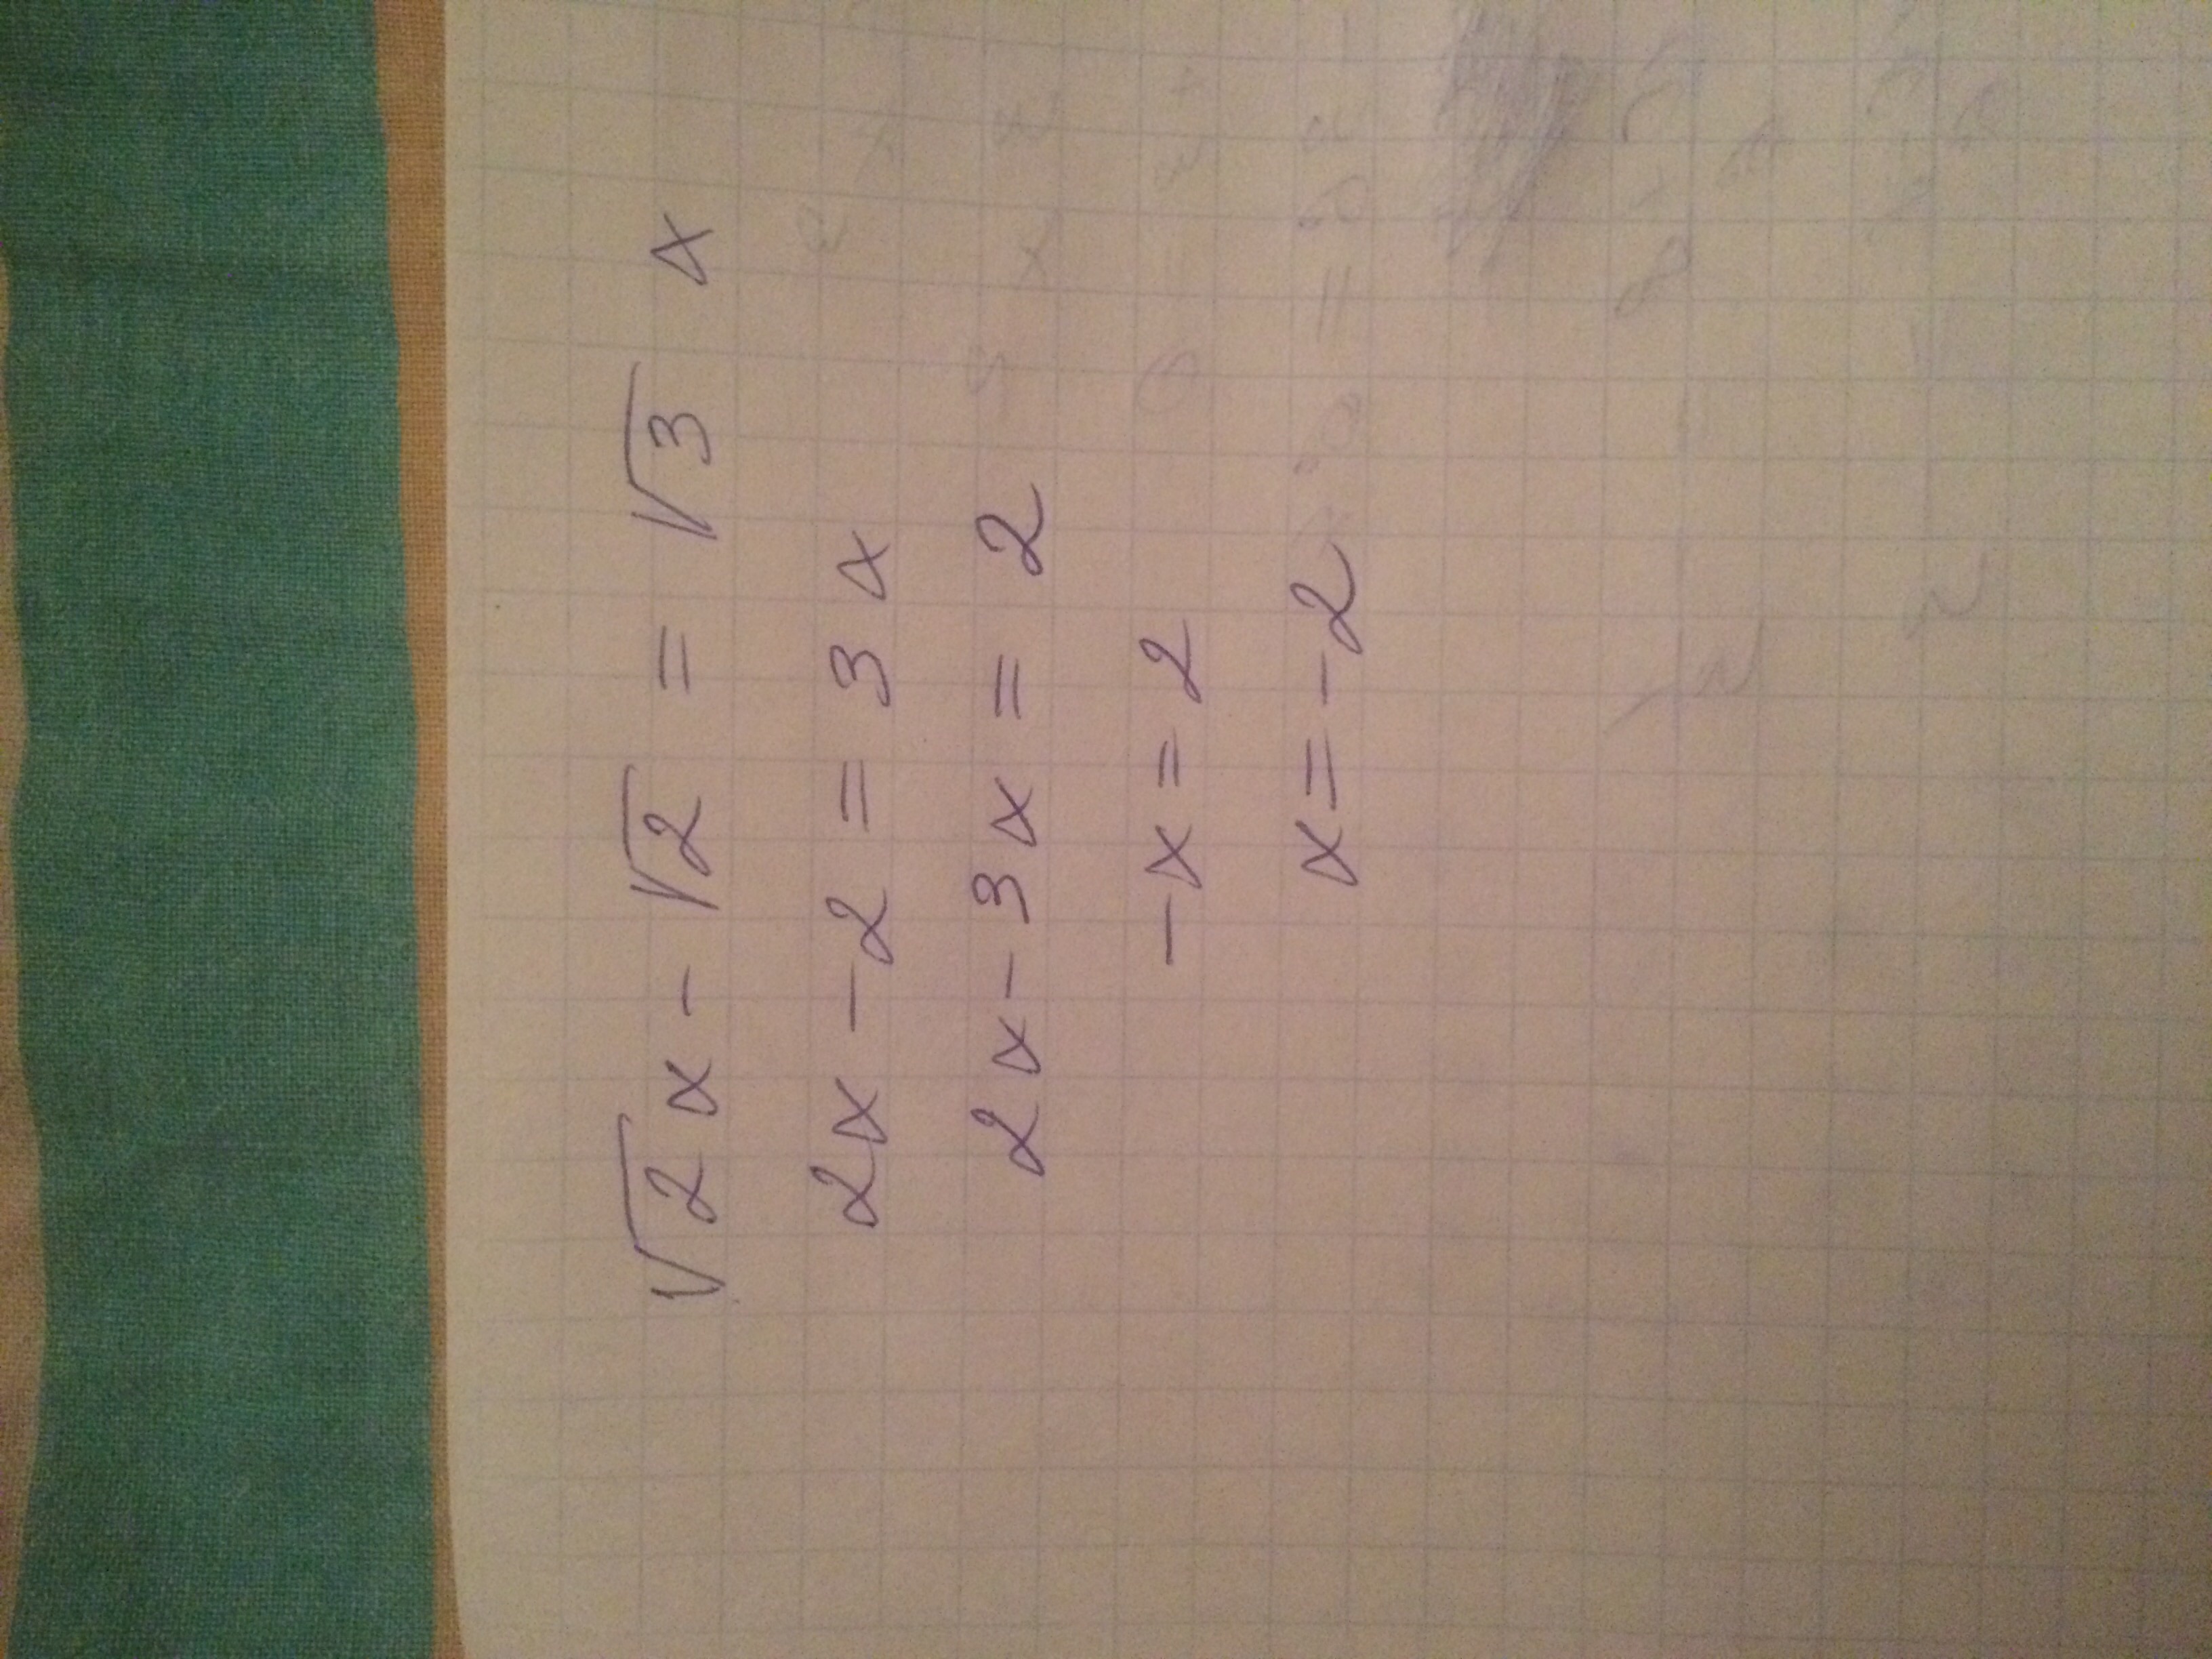 √2x - √2 = √3 x
2x - 2 = 3x
2x - 3x = 2
-x = 2
x = -2